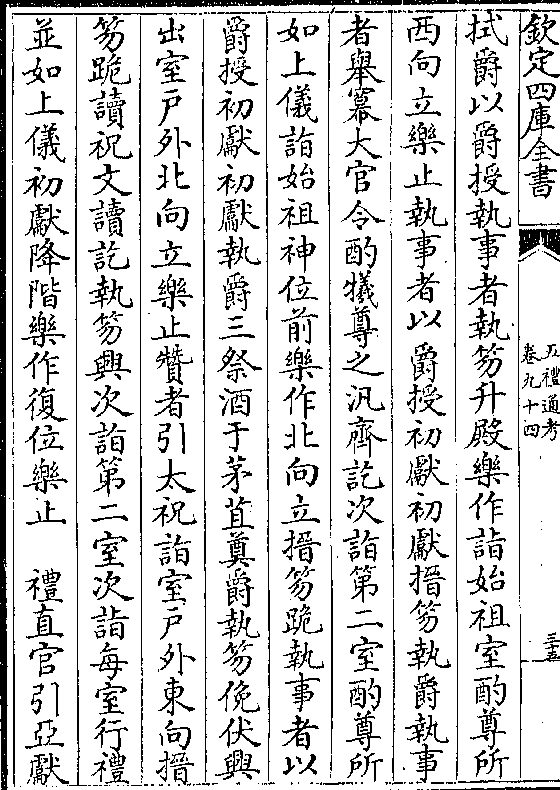 欽定四庫全書
五禮通考
卷九十四
三五
拭爵以爵授執事者執笏升殿樂作詣始祖室酌尊所
西向立樂止執事者以爵授初獻初獻搢笏執爵執事
者舉冪大官令酌犧尊之汎齊訖次詣第二室酌尊所
如上儀詣始祖神位前樂作北向立搢笏跪執事者以
爵授初獻初獻執爵三祭酒于茅苴奠爵執笏俛伏興
出室戸外北向立樂止贊者引太祝詣室戸外東向搢
笏跪讀祝文讀訖執笏興次詣第二室次詣每室行禮
並如上儀初獻降階樂作復位樂止　禮直官引亞獻